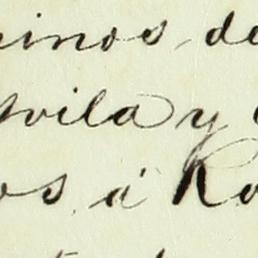 inos de
Avila y
os á Ro